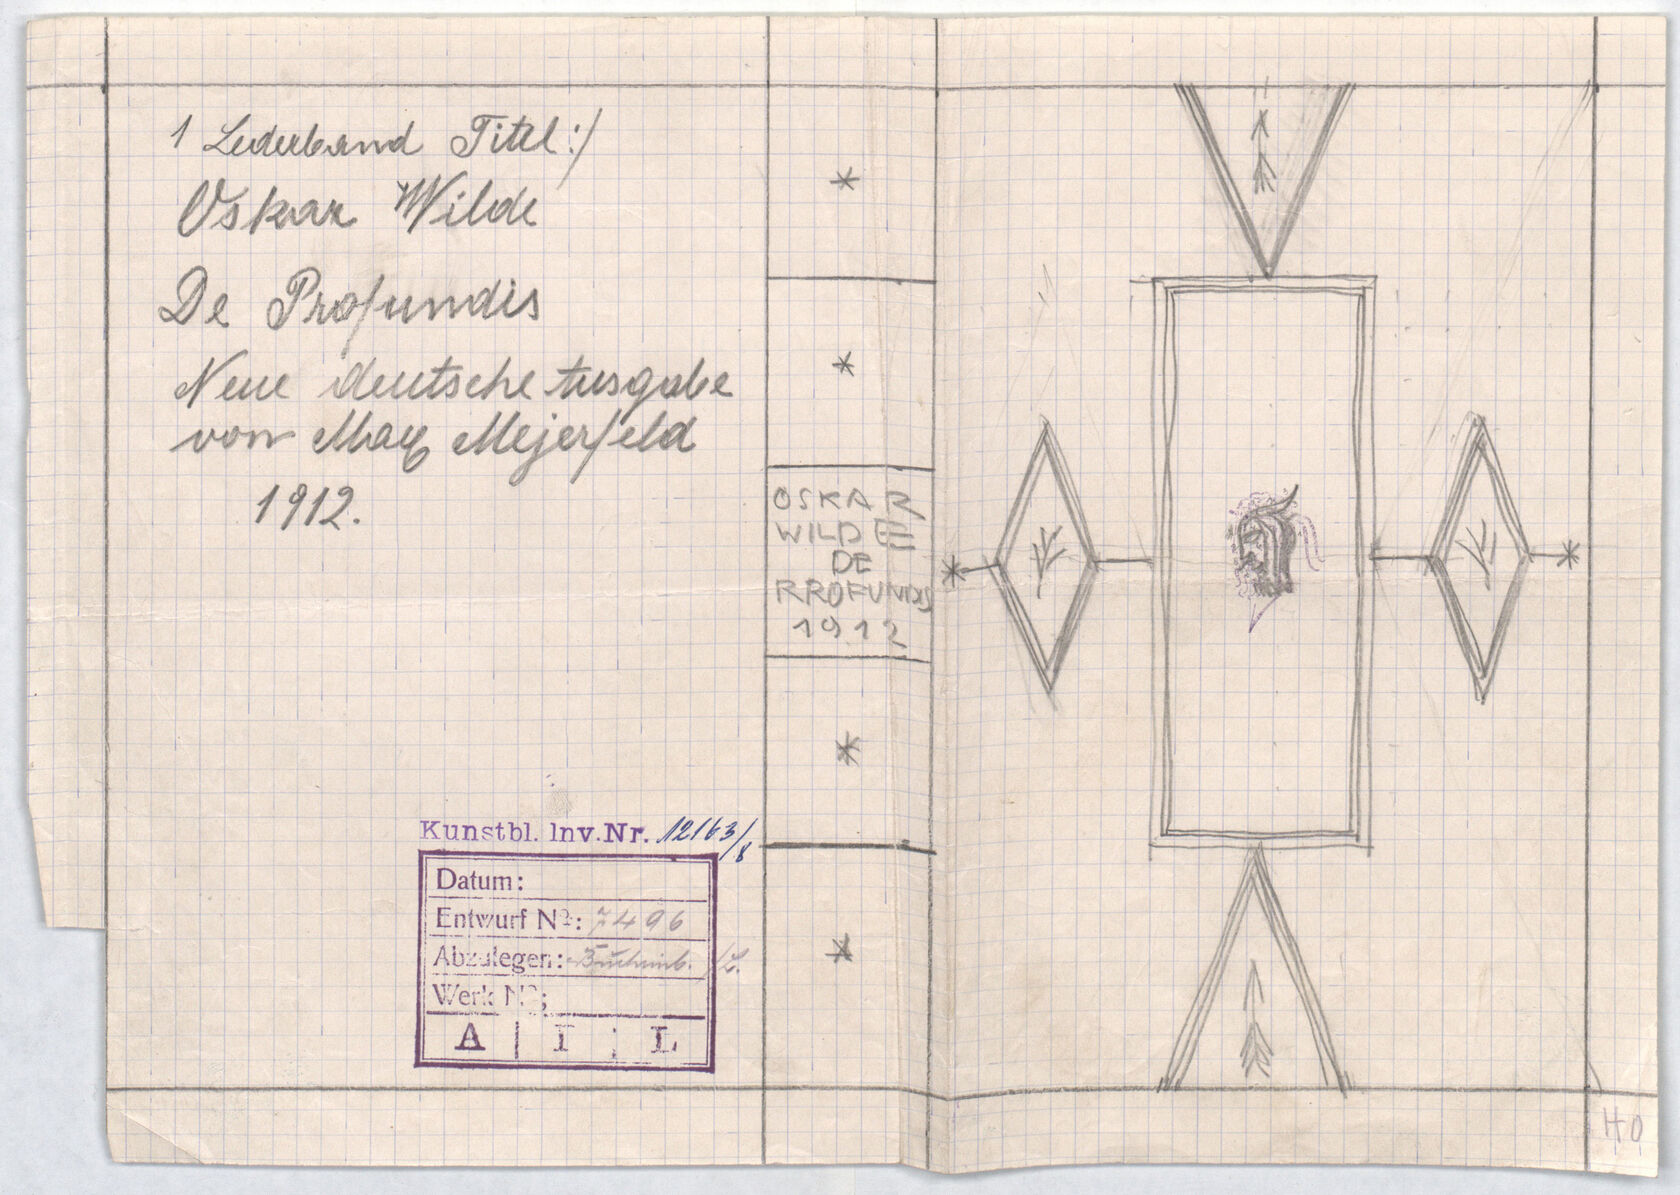 1 Lederband Titel:/
Oskar Wilde
De Profundis
Neue deutsche Ausgabe
von Max Mejerfeld
1912.
OSKAR
WILDE
DE
RROFUNDIS
1912
Kunstbl. Inv. Nr. 12163/8
Datum:
Entwurf Nº: 7496
Abzulegen:
Werk Nº:
A I L
HO